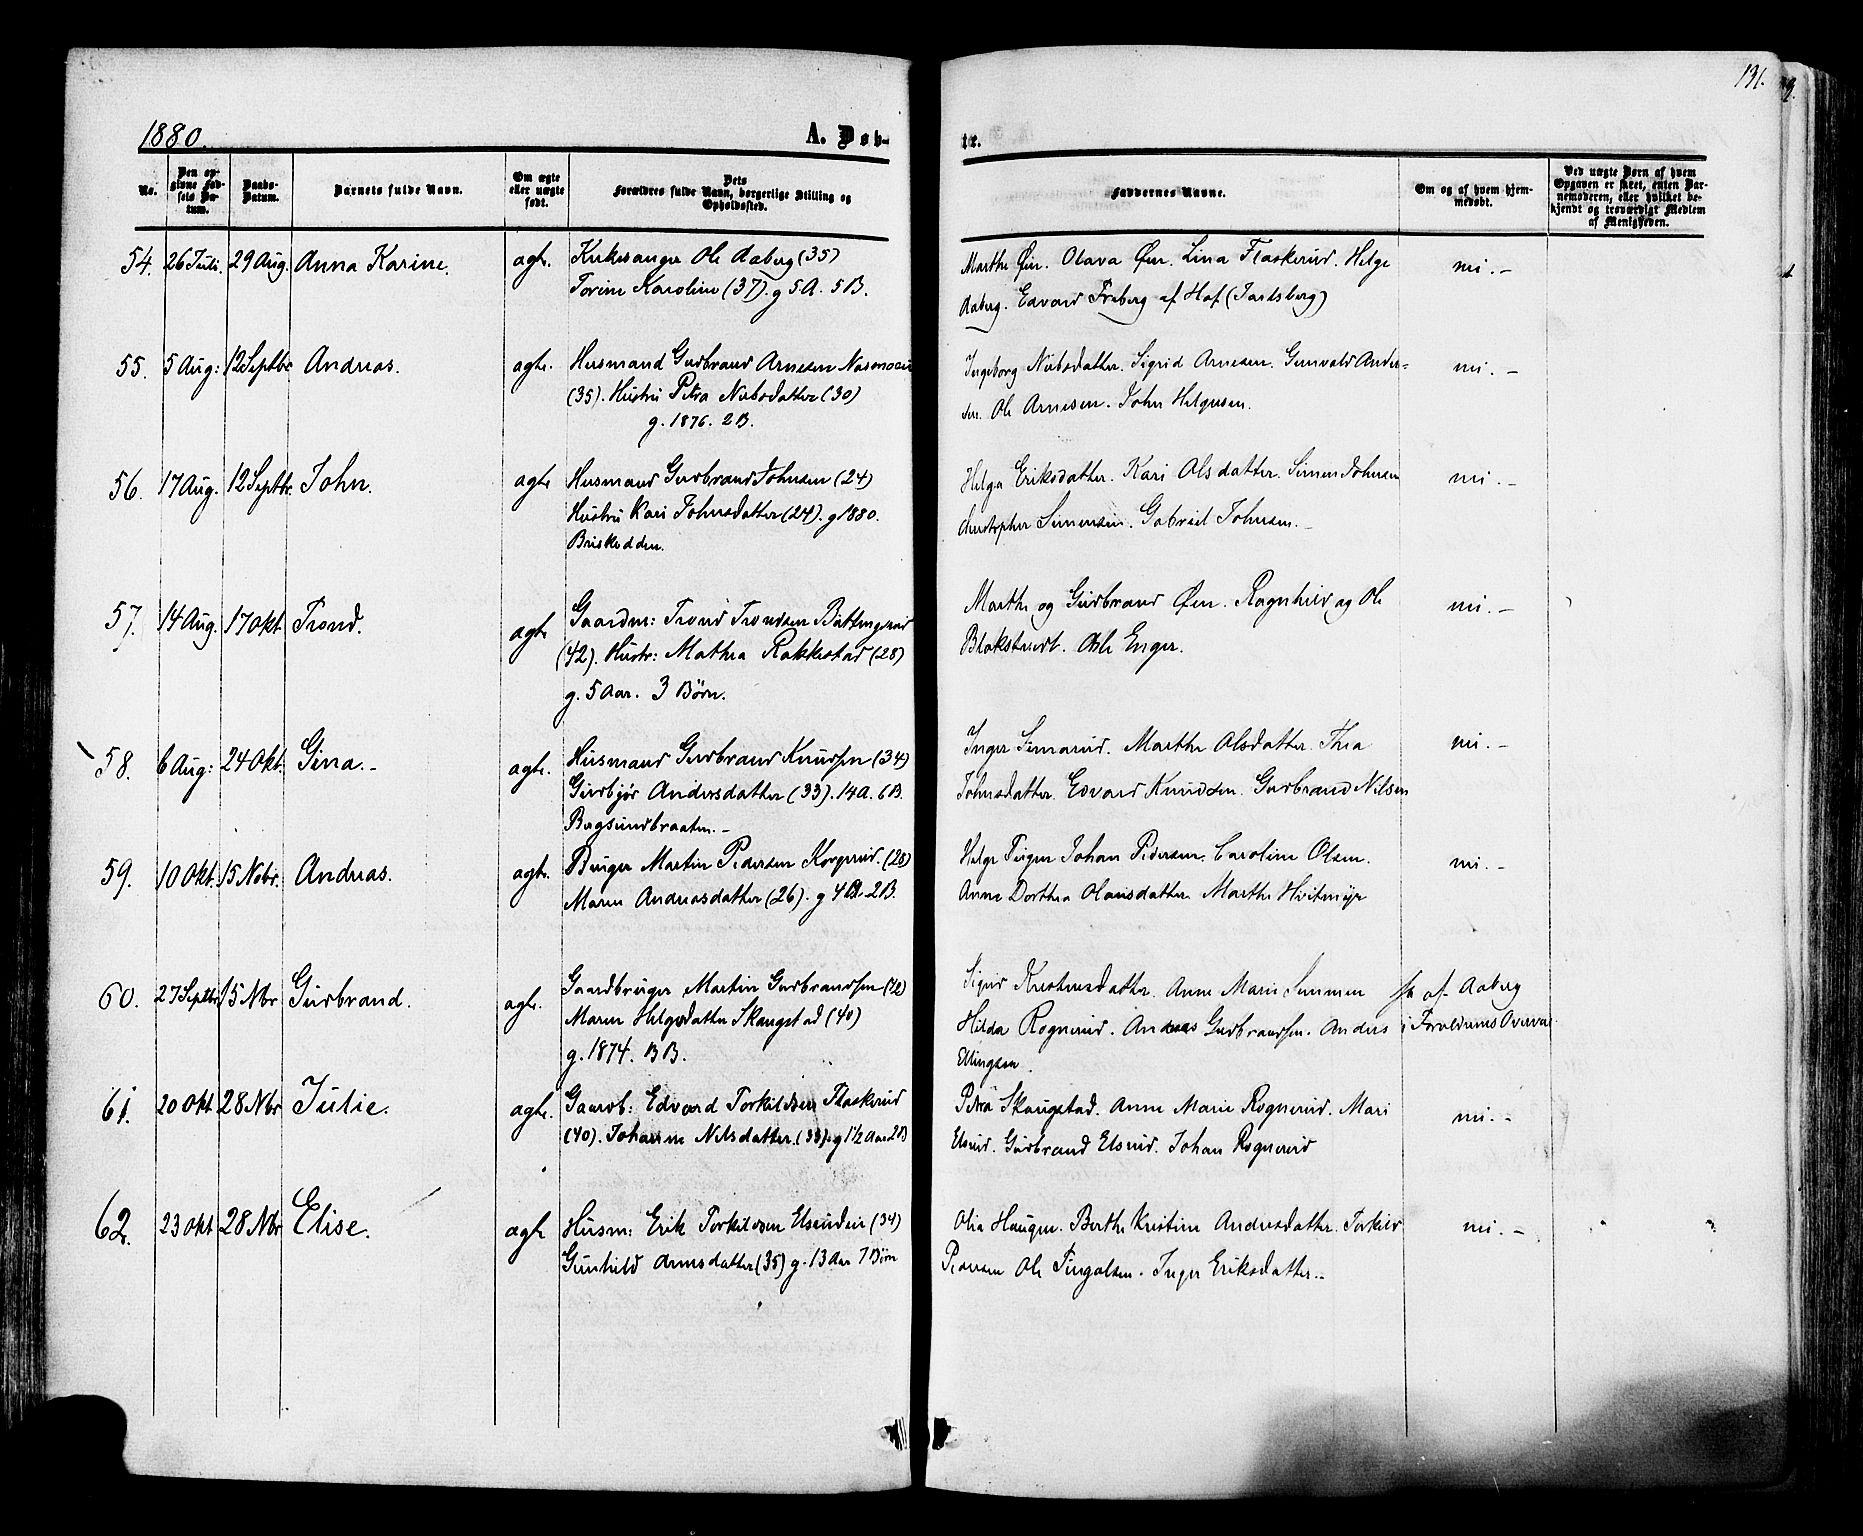 1880.
A. Døb-
No.
Den op-
givne Fød-
sels Da-
tum.
Daabs-
Datum.
Barnets fulde Navn.
Om ægte
eller uægte
født.
Dets
Forældres fulde Navn, borgerlige Stilling og
Opholdssted.
54. 26 Juli. 29 Aug. Anna Karine. ægte. Kirkesanger Ole Aaberg (35)
Torine Karoline (37). g 5A. 5B.
55. 5 Aug: 12 Septbr Andreas. ægte. Husmand Gudbrand Arnesen
(35). Hustru Petra Nilsdatter (30)
g. 1876. 2B.
56. 17 Aug. 12 Septbr. John. ægte Husmand Gudbrand Johnsen (24)
Hustru Kari Johnsdatter (24). g 1880.
Briskodden.
57. 14 Aug. 17 Okt. Trond. ægte Gaardm: Trond Trondsen
(42). Hustr: Mathea Rakkestad (28)
g. 5 Aar. 3 Børn.
58. 6 Aug: 24 Okt. Gina.- ægte. Husmand Gudbrand Knudsen (34)
Gudbjør Andersdatter (33). 14A. 6B.
59. 10 Okt. 15 Nobr. Andreas. ægte. Bruger Martin Pedersen (28)
Maren Andreasdatter (26). g 4A. 2B.
60. 27 Septbr 15 Nbr Gudbrand. ægte. Gaardbruger Martin Gudbrandsen
Maren Helgesdatter Skaugstad (40)
g. 1874.
61. 20 Okt 28 Nbr Julie. ægte. Gaardb: Edvard Torkildsen Flaskerud
(40). Johanne Nilsdatter. (33). g 1½ Aar 2B
62. 23 Okt 28 Nbr Elise. ægte Husm: Erik Torkildsen (34)
Gunhild Arnesdatter (35) g. 13 Aar 7 Børn
131.
te.
Faddernes Navne.
Om og af hvem hjem-
medøbt.
Ved uægte Børn af hvem
Opgaven er skeet, enten Bar-
nemoderen, eller hvilket be-
kjendt og troværdigt Medlem
af Menigheden.
Marthe Øen. Olava Øen. Lina Flaskerud. Helge nei.-
Aaberg. Edvard Freberg af Hof (Jarlsberg)
Ingeborg Nilsdatter. Sigrid Arnesen. Gunvald Ander- nei.-
sen. Ole Arnesen. John Helgesen.
Helga Eriksdatter. Kari Olsdatter. Simen Johnsen nei.-
Christopher Simensen. Gabriel Johnsen.-
Marthe og Gudbrand Øen. Ragnhild og Ole nei.-
Enger.
Inger Simerud. Marthe Olsdatter. Thea nei.-
Johnsdatter. Edvard Knudsen. Gudbrand Nilsen
Helge Johan Pedersen. Caroline Olsen. nei.-
Anne Dorthea Olausdatter. Marthe Hvitmyr
Kristensdatter. Anne Marie Simmen ja af Aaberg
Hilda Rognerud. Andreas Gudbrandsen. Anders i Forældrenes
Ellingsen.
Petra Skaugstad. Anne Marie Rognerud. Mari nei.-
Elsrud. Gudbrand Elsrud. Johan Rognerud
Olia Haugen. Berthe Kristine Andersdatter. Torkild nei.-
Pedersen Ole Tingelsen. Inger Eriksdatter.-